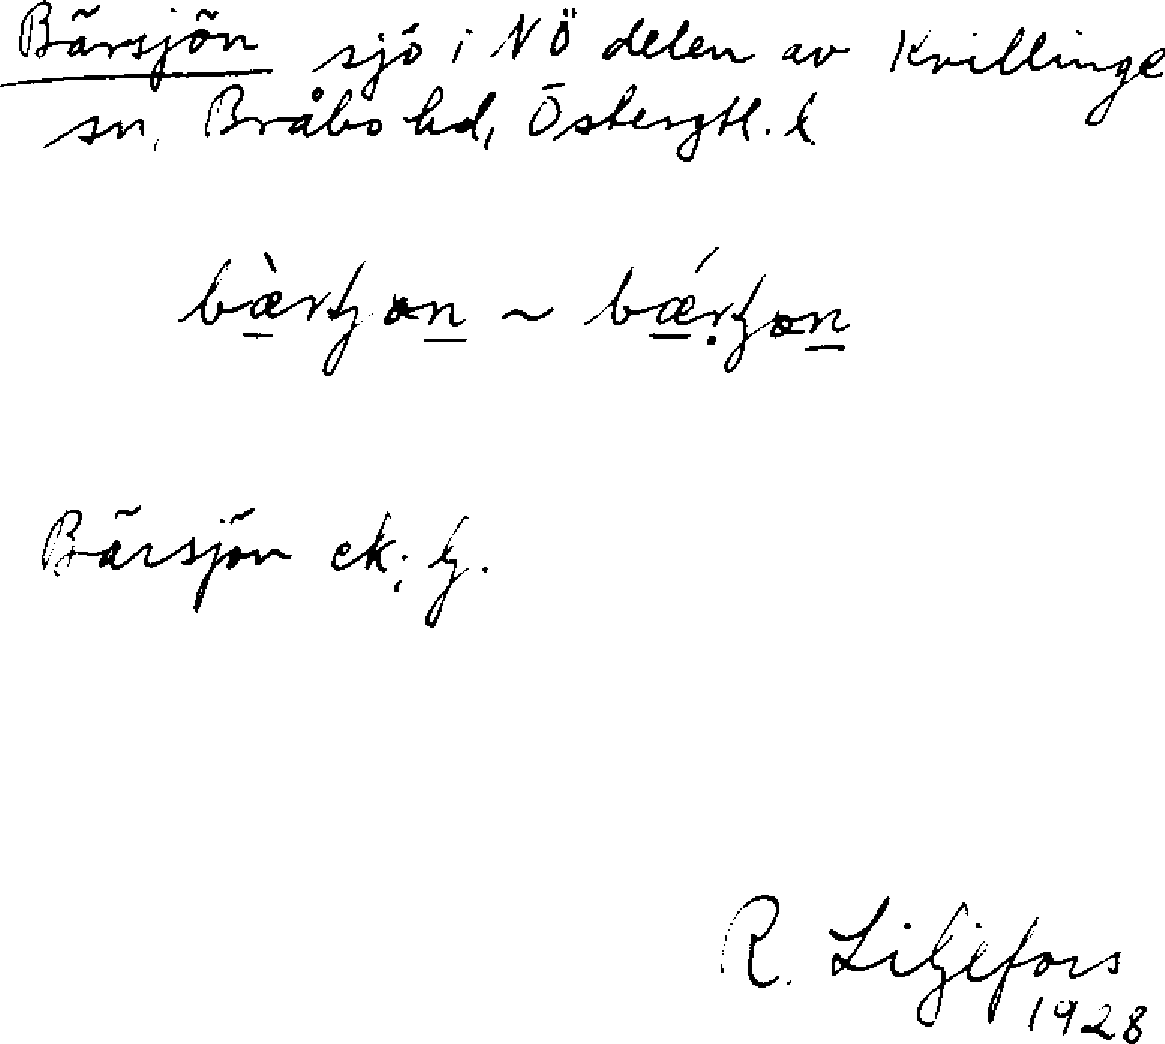 Bärsjön sjö i NÖ delen av Kvillinge
sn, Bråbo hd, Östergtl. l
Bärsjön ek;
R. Liljefors
1928